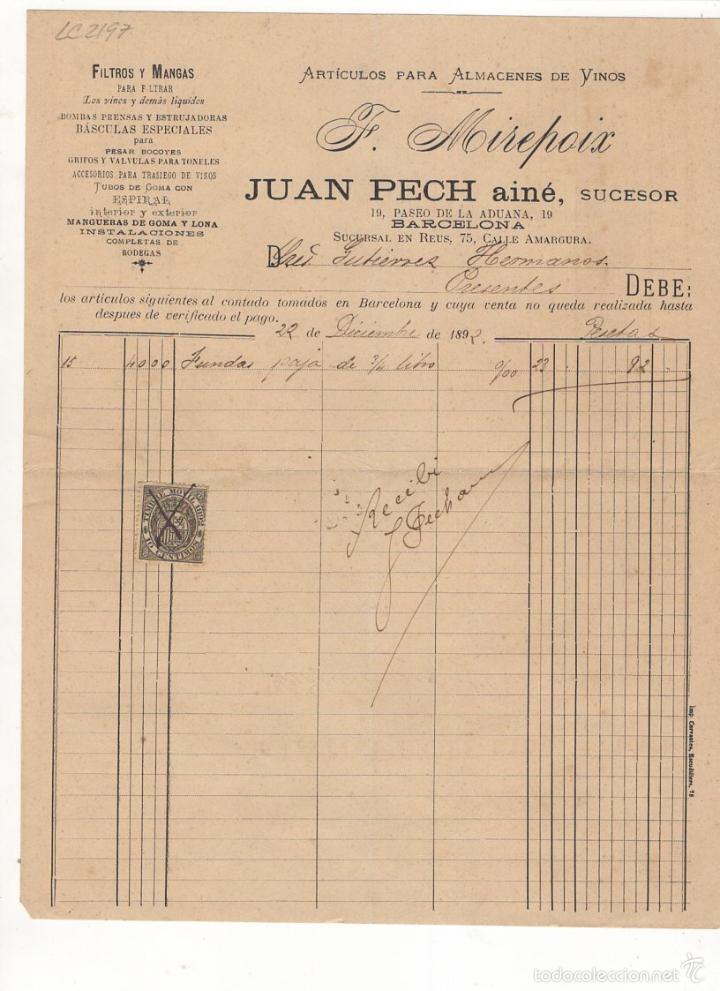 LC2197
FILTROS Y MANGAS
PARA FILTRAR
Los vinos y demás líquidos
BOMBAS PRENSAS Y ESTRUJADORAS
BÁSCULAS ESPECIALES
para
PESAR BOCOYES
GRIFOS Y VALVULAS PARA TONELES
ACCESORIOS PARA TRASIEGO DE VINOS
TUBOS DE GOMA CON
ESPIRAL
interior y exterior
MANGUERAS DE GOMA Y LONA
INSTALACIONES
COMPLETAS DE
BODEGAS
ARTÍCULOS PARA ALMACENES DE VINOS
F. Mirepoix
JUAN PECH ainé, SUCESOR
19, PASEO DE LA ADUANA, 19
BARCELONA
SUCURSAL EN REUS, 75, CALLE AMARGURA.
D Gutierrez Hermanos.
Presentes DEBE:
los articulos siguientes al contado tomados en Barcelona y cuya venta no queda realizada hasta
despues de verificado el pago.
22 de Diciembre de 1892. Pesetas
15 4000 Fundas paja de 3/4 litro 0/00 23 92
Recibi
J Pech
TIMBRE MOVIL 1892
10 CENTIMOS
Imp. Cervantes, Escudillers, 78
todocoleccion.net